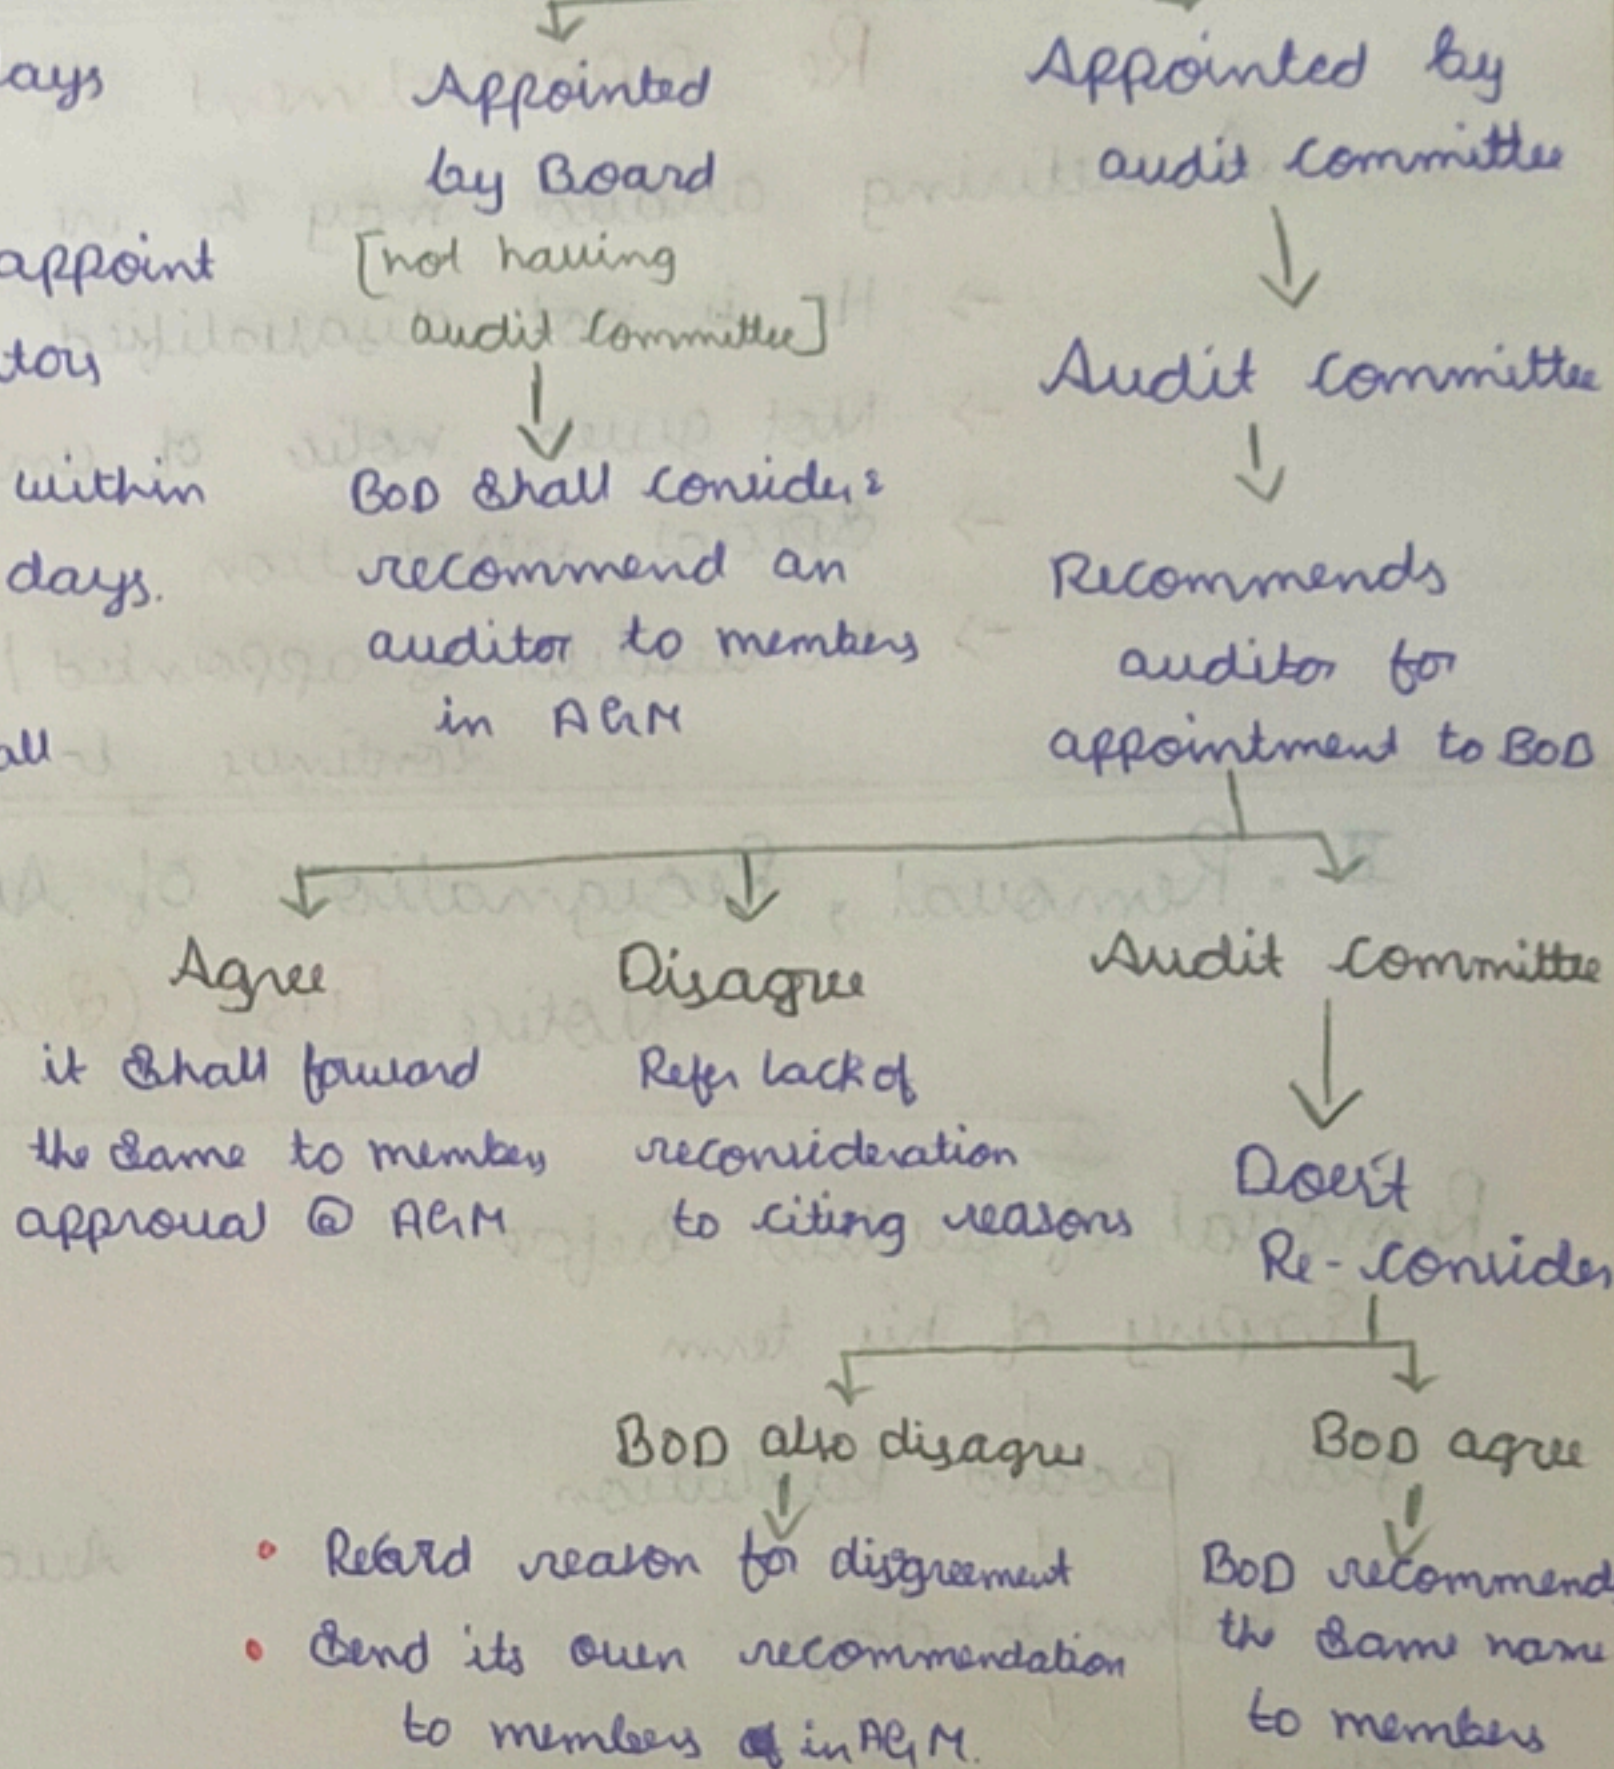 ays
Appointed
by Board
[not having
audit Committee]
BOD Shall Consider &
recommend an
auditor to members
in AGM
Appointed by
audit Committee
Audit Committee
Recommends
auditor for
appointment to BOD
appoint
tors
within
days.
all
Agree
it Shall forward
the Same to members
approval @ AGM
Disagree
Refer back of
reconsideration
to citing reasons
Audit Committee
Does't
Re-Consider
BOD also disagree
• Record reason for disgreement
• Send its own recommendation
to members in AGM.
BOD agree
BOD recommend
the Same name
to members